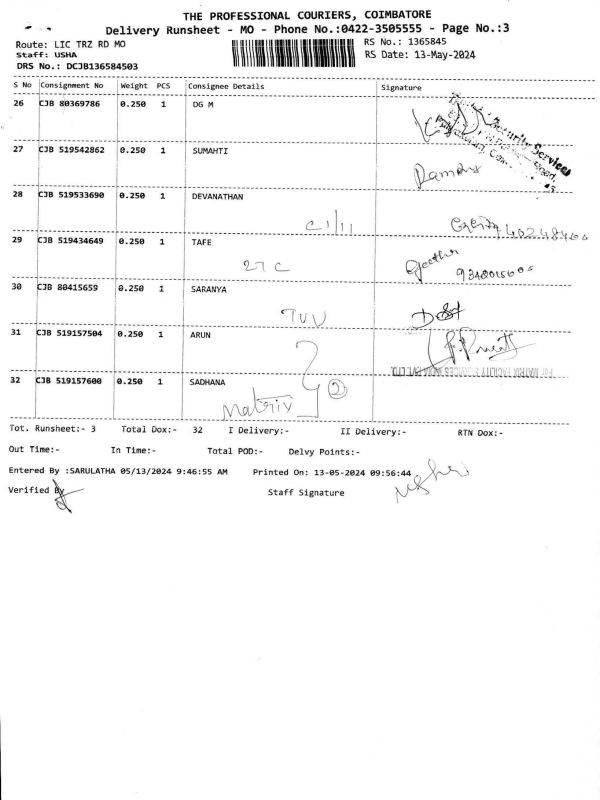 THE PROFESSIONAL COURIERS, COIMBATORE
Delivery Runsheet - MO - Phone No.:0422-3505555 - Page No.:3
Route: LIC TRZ RD MO RS No.: 1365845
Staff: USHA RS Date: 13-May-2024
DRS No.: DCJB136584503
S No Consignment No Weight PCS Consignee Details Signature
26 CJB 80369786 0.250 1 DG M
Security Services
27 CJB 519542862 0.250 1 SUMAHTI
28 CJB 519533690 0.250 1 DEVANATHAN
C1/11
29 CJB 519434649 0.250 1 TAFE
27 C Geetha
30 CJB 80415659 0.250 1 SARANYA
TUV
31 CJB 519157504 0.250 1 ARUN
For MATRIX FACILITY SERVICES
32 CJB 519157600 0.250 1 SADHANA
Matrix 2
Tot. Runsheet:- 3 Total Dox:- 32 I Delivery:- II Delivery:- RTN Dox:-
Out Time:- In Time:- Total POD:- Delvy Points:-
Entered By :SARULATHA 05/13/2024 9:46:55 AM Printed On: 13-05-2024 09:56:44
Verified By Staff Signature